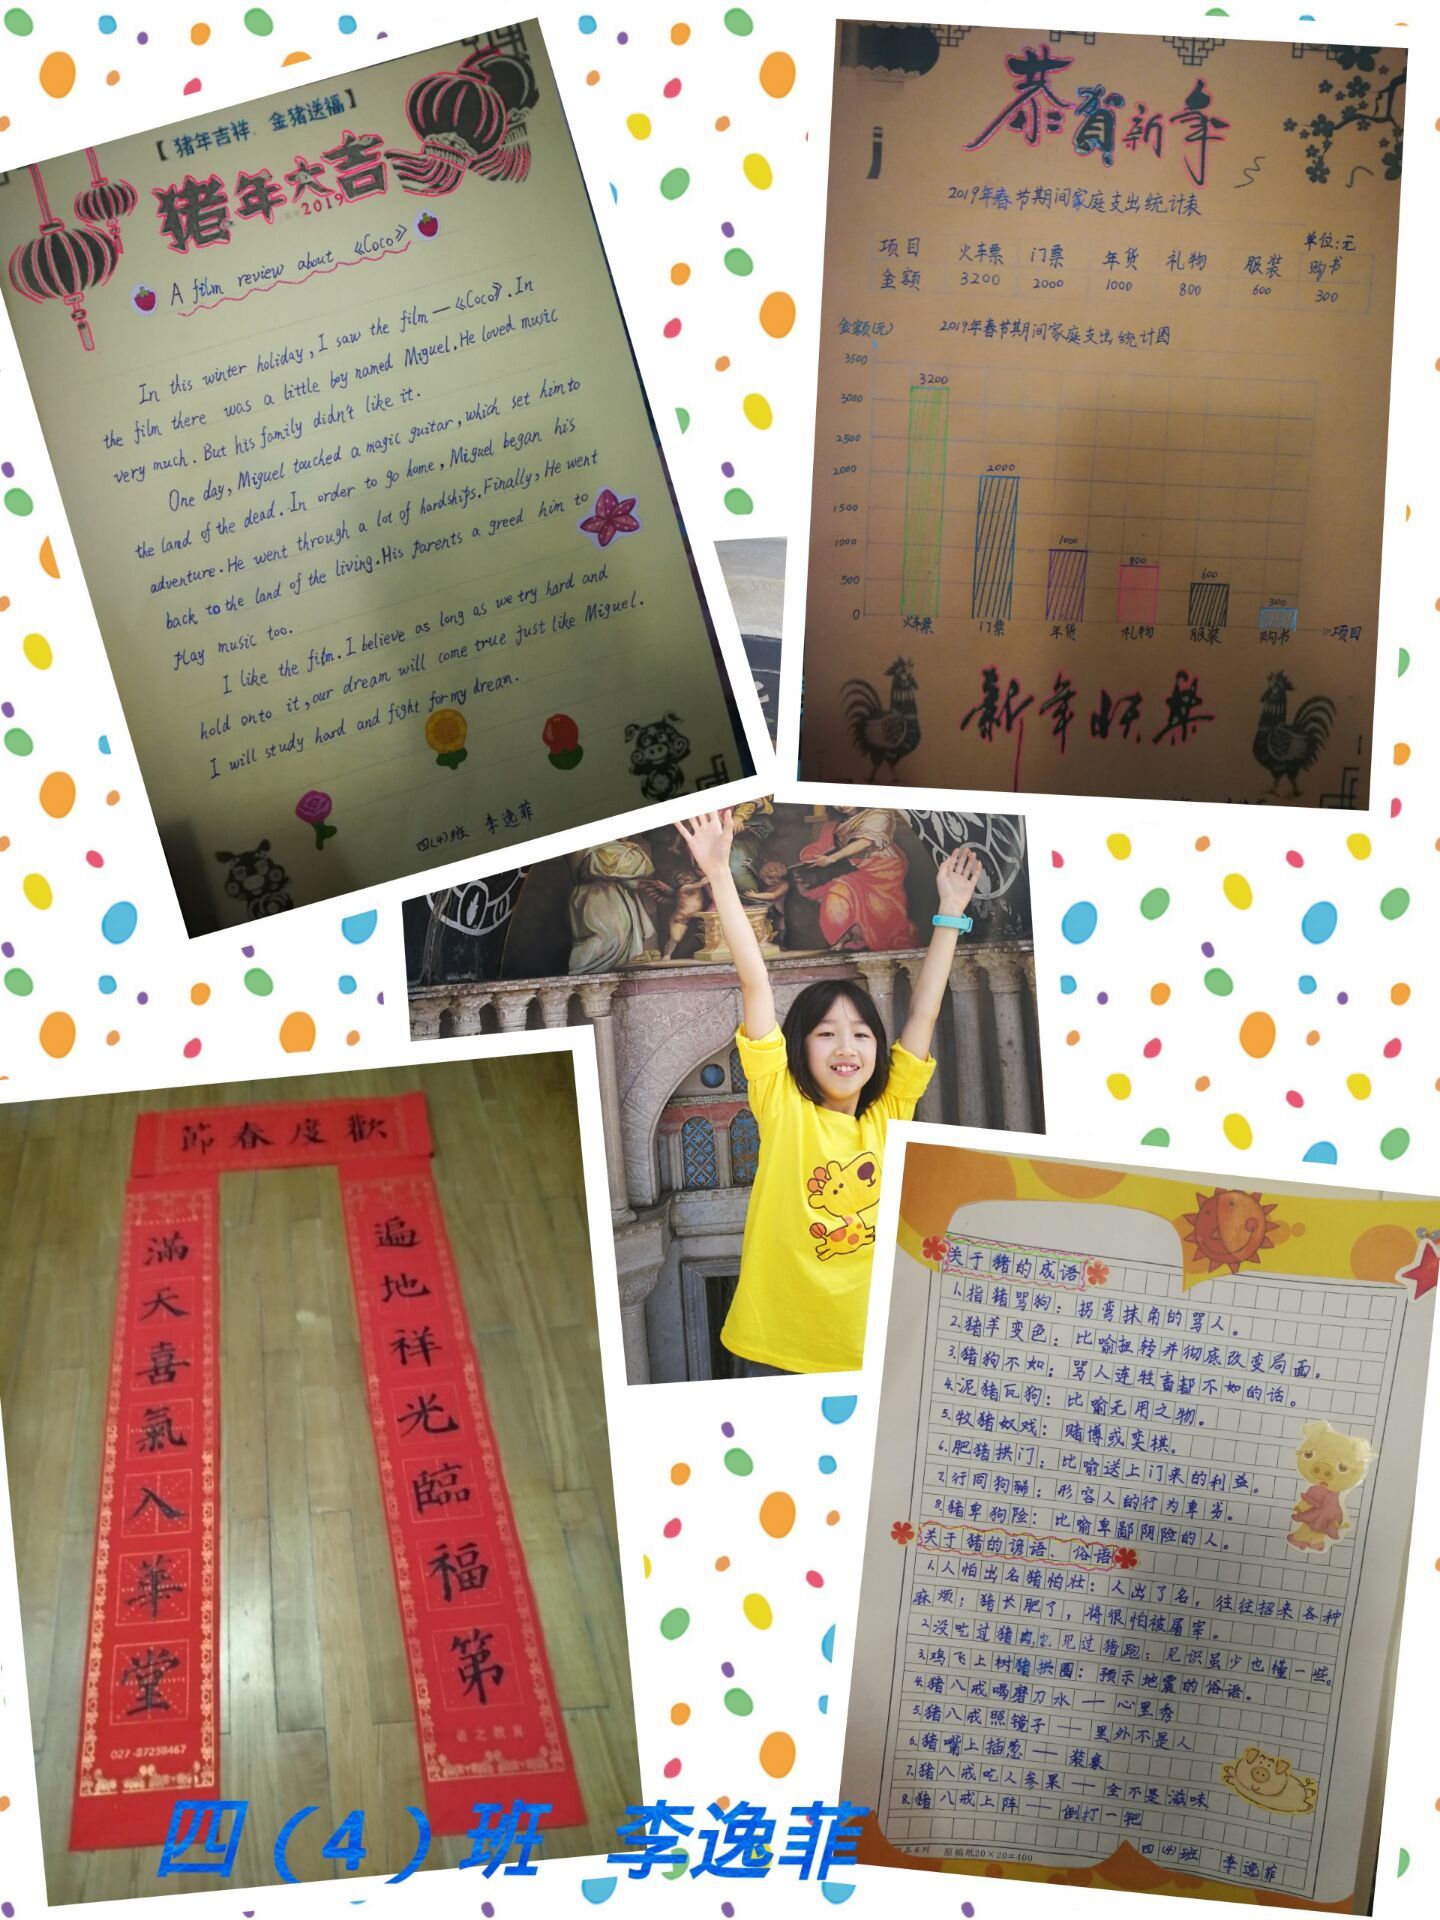 【猪年吉祥、金猪送福】
猪年大吉
2019
A film review about 《Coco》
In this winter holiday, I saw the film — 《Coco》. In
the film there was a little boy named Miguel. He loved music
very much. But his family didn't like it.
One day, Miguel touched a magic guitar, which set him to
the land of the dead. In order to go home, Miguel began his
adventure. He went through a lot of hardships. Finally, He went
back to the land of the living. His parents a greed him to
play music too.
I like the film. I believe as long as we try hard and
hold onto it, our dream will come true just like Miguel.
I will study hard and fight for my dream.
四(4)班 李逸菲
恭贺新年
2019年春节期间家庭支出统计表
单位:元
项目 火车票 门票 年货 礼物 服装 购书
金额 3200 2000 1000 800 600 300
金额(元) 2019年春节期间家庭支出统计图
3500
3200
3000
2500
2000
2000
1500
1000
1000
800
600
500
300
0
火车票 门票 年货 礼物 服装 购书 项目
新年快乐
節春度歡
滿天喜氣入華堂
027-87258467
遍地祥光臨福第
关于猪的成语
1.指猪骂狗：拐弯抹角的骂人。
2.猪羊变色：比喻扭转并彻底改变局面。
3.猪狗不如：骂人连牲畜都不如的话。
4.泥猪瓦狗：比喻无用之物。
5.牧猪奴戏：赌博或奕棋。
6.肥猪拱门：比喻送上门来的利益。
7.行同狗豨：形容人的行为卑劣。
8.猪卑狗险：比喻卑鄙阴险的人。
关于猪的谚语、俗语
1.人怕出名猪怕壮：人出了名，往往招来各种
麻烦；猪长肥了，将很怕被屠宰。
2.没吃过猪肉,也见过猪跑：见识虽少也懂一些。
3.鸡飞上树猪拱圈：预示地震的俗语。
4.猪八戒喝磨刀水——心里秀
5.猪八戒照镜子——里外不是人
6.猪嘴上插葱——装象
7.猪八戒吃人参果——全不是滋味
8.猪八戒上阵——倒打一耙
四(4)班 李逸菲
原稿纸20×20=400
四（4）班 李逸菲